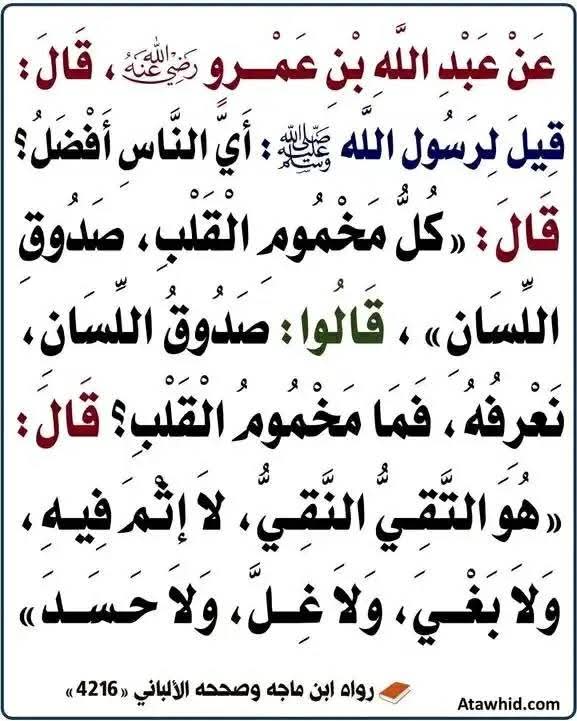 عَنْ عَبْدِ اللَّهِ بْنِ عَمْـرٍو رَضِيَ اللَّهُ عَنْهُ ، قَالَ:
قِيلَ لِرَسُولِ اللَّه ﷺ : أَيُّ النَّاسِ أَفْضَلُ؟
قَالَ: «كُلُّ مَخْمُومِ الْقَلْبِ، صَدُوقِ
اللِّسَانِ» ، قَالُوا: صَدُوقُ اللِّسَانِ،
نَعْرِفُهُ، فَمَا مَخْمُومُ الْقَلْبِ؟ قَالَ:
«هُوَ التَّقِـيُّ النَّقِـيُّ، لَا إِثْـمَ فِيـهِ،
وَلَا بَغْـيَ، وَلَا غِـلَّ، وَلَا حَـسَـدَ»
رواه ابن ماجه وصححه الألباني «4216»
Atawhid.com